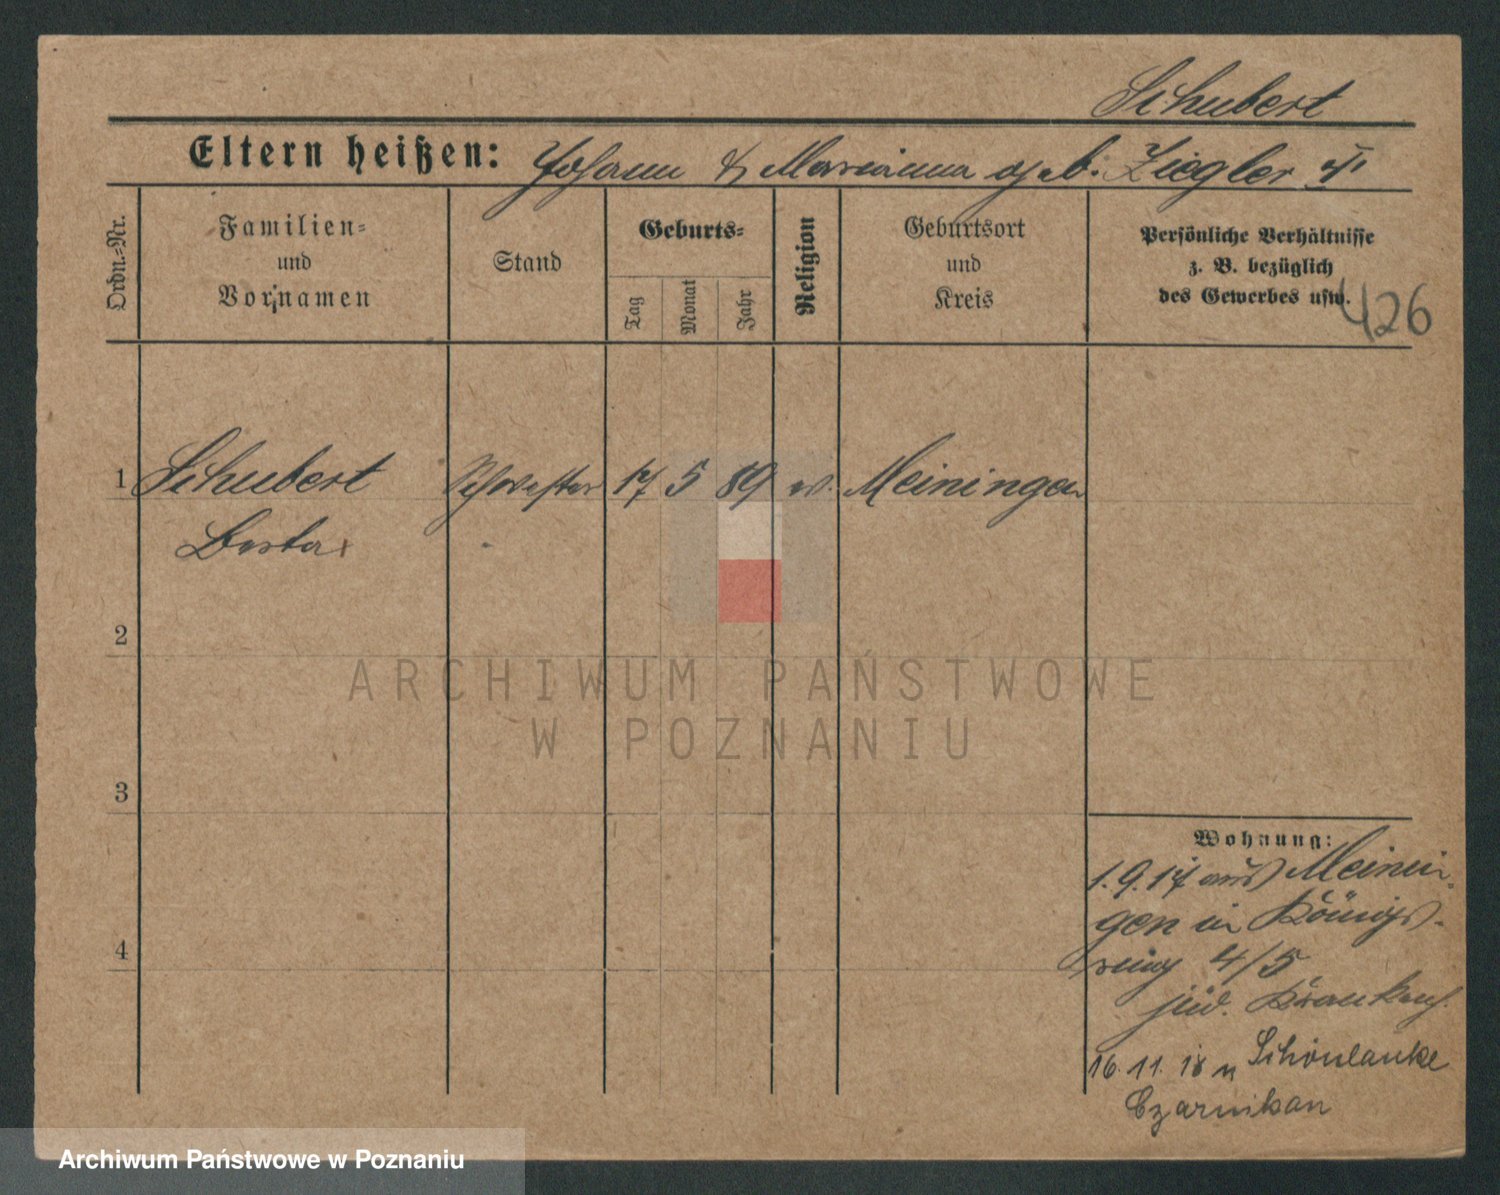 Schubert
Eltern heißen: Johann & Marianna geb. Ziegler
Ordn.-Nr.
Familien-
und
Vornamen
Stand
Geburts-
Tag
Monat
Jahr
Religion
Geburtsort
und
Kreis
Persönliche Verhältnisse
z. B. bezüglich
des Gewerbes usw.
426
1 Schubert Schwester 17 5 89 ev. Meiningen
Berta
2
3
4
Wohnung:
1.9.17 aus Meinin-
gen in Königs-
ring 4/5
jüd. Krankenh.
16.11.18 n Schönlanke
Czarnikau
ARCHIWUM PAŃSTWOWE
W POZNANIU
Archiwum Państwowe w Poznaniu